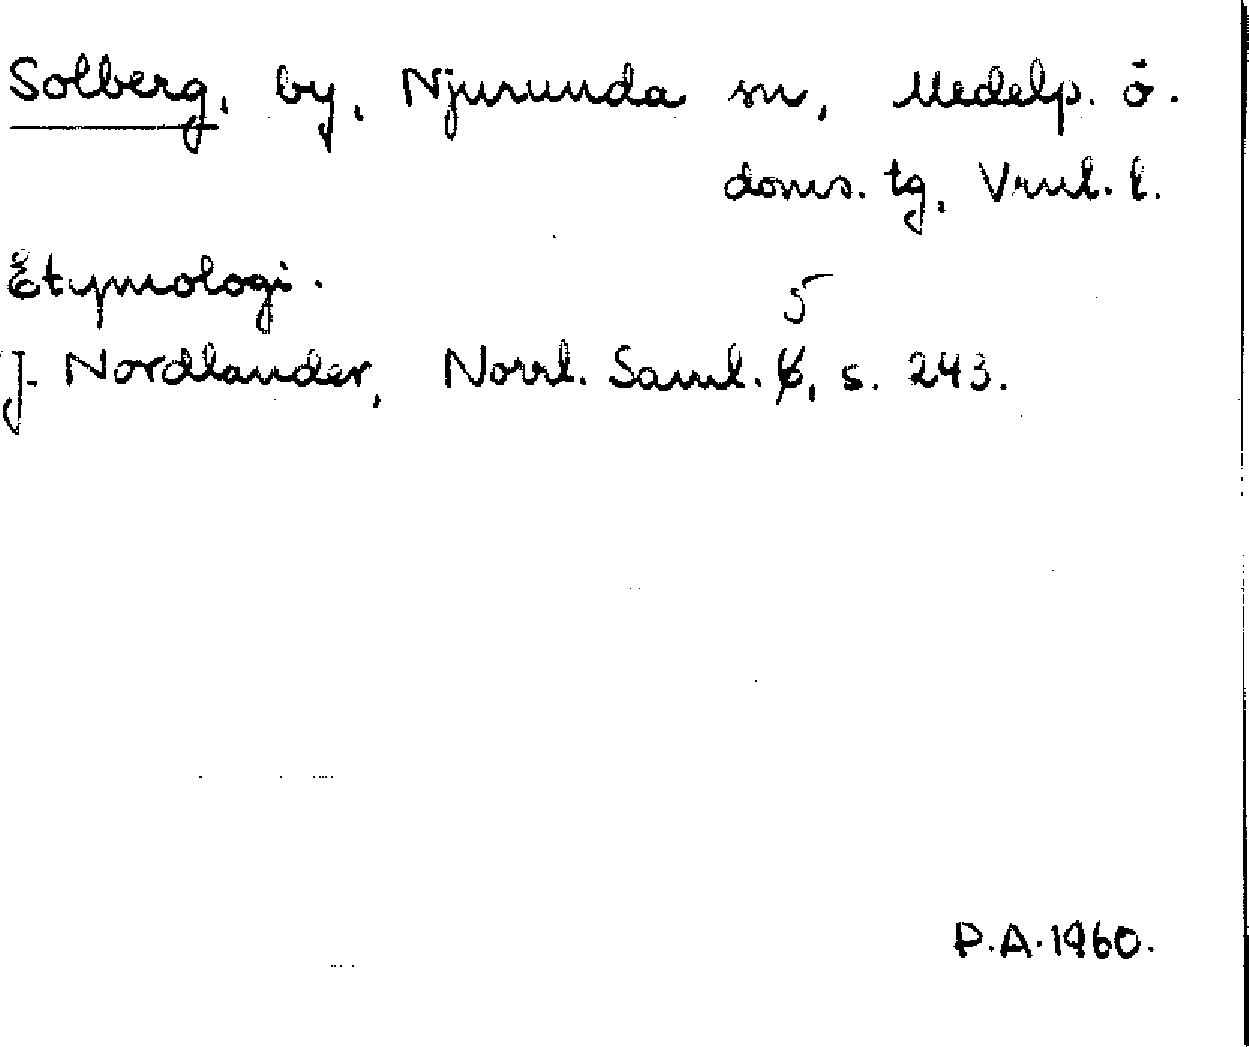 Solberg, by, Njurunda sn, Medelp. ö.
doms. tg, Vnrl. l.
Etymologi.
J. Nordlander, Norrl. Saml. 5, s. 243.
P.A. 1960.